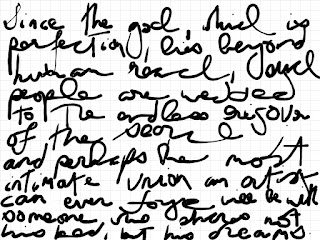 Since the goal, which is
perfection, lies beyond
human reach, good
people are wedded
to the endless rigour
of the search
and perhaps the most
intimate union an artist
can ever forge will be with
someone who shares not
his bed, but his dreams